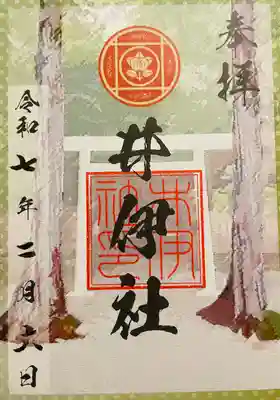 奉拝
井伊社
井伊社印
令和七年二月六日